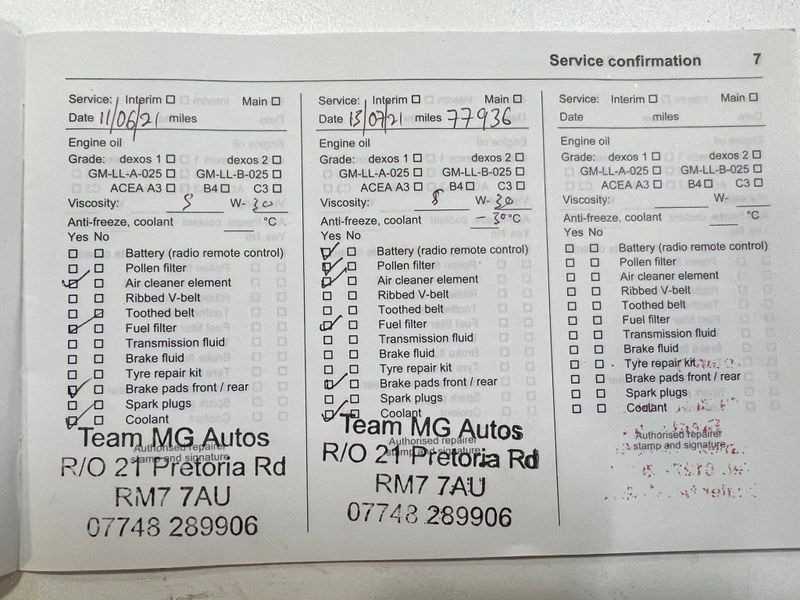 Service confirmation 7
Service: Interim Main
Date 11/06/21 miles
Engine oil
Grade: dexos 1 dexos 2
GM-LL-A-025 GM-LL-B-025
ACEA A3 B4 C3
Viscosity: 5 W- 30
Anti-freeze, coolant °C
Yes No
Battery (radio remote control)
Pollen filter
Air cleaner element
Ribbed V-belt
Toothed belt
Fuel filter
Transmission fluid
Brake fluid
Tyre repair kit
Brake pads front / rear
Spark plugs
Coolant
Authorised repairer
stamp and signature
Team MG Autos
R/O 21 Pretoria Rd
RM7 7AU
07748 289906
Service: Interim Main
Date 13/07/21 miles 77936
Engine oil
Grade: dexos 1 dexos 2
GM-LL-A-025 GM-LL-B-025
ACEA A3 B4 C3
Viscosity: W- 30
Anti-freeze, coolant - 30 °C
Yes No
Battery (radio remote control)
Pollen filter
Air cleaner element
Ribbed V-belt
Toothed belt
Fuel filter
Transmission fluid
Brake fluid
Tyre repair kit
Brake pads front / rear
Spark plugs
Coolant
Authorised repairer
stamp and signature
Team MG Autos
R/O 21 Pretoria Rd
RM7 7AU
07748 289906
Service: Interim Main
Date miles
Engine oil
Grade: dexos 1 dexos 2
GM-LL-A-025 GM-LL-B-025
ACEA A3 B4 C3
Viscosity: W-
Anti-freeze, coolant °C
Yes No
Battery (radio remote control)
Pollen filter
Air cleaner element
Ribbed V-belt
Toothed belt
Fuel filter
Transmission fluid
Brake fluid
Tyre repair kit
Brake pads front / rear
Spark plugs
Coolant
Authorised repairer
stamp and signature